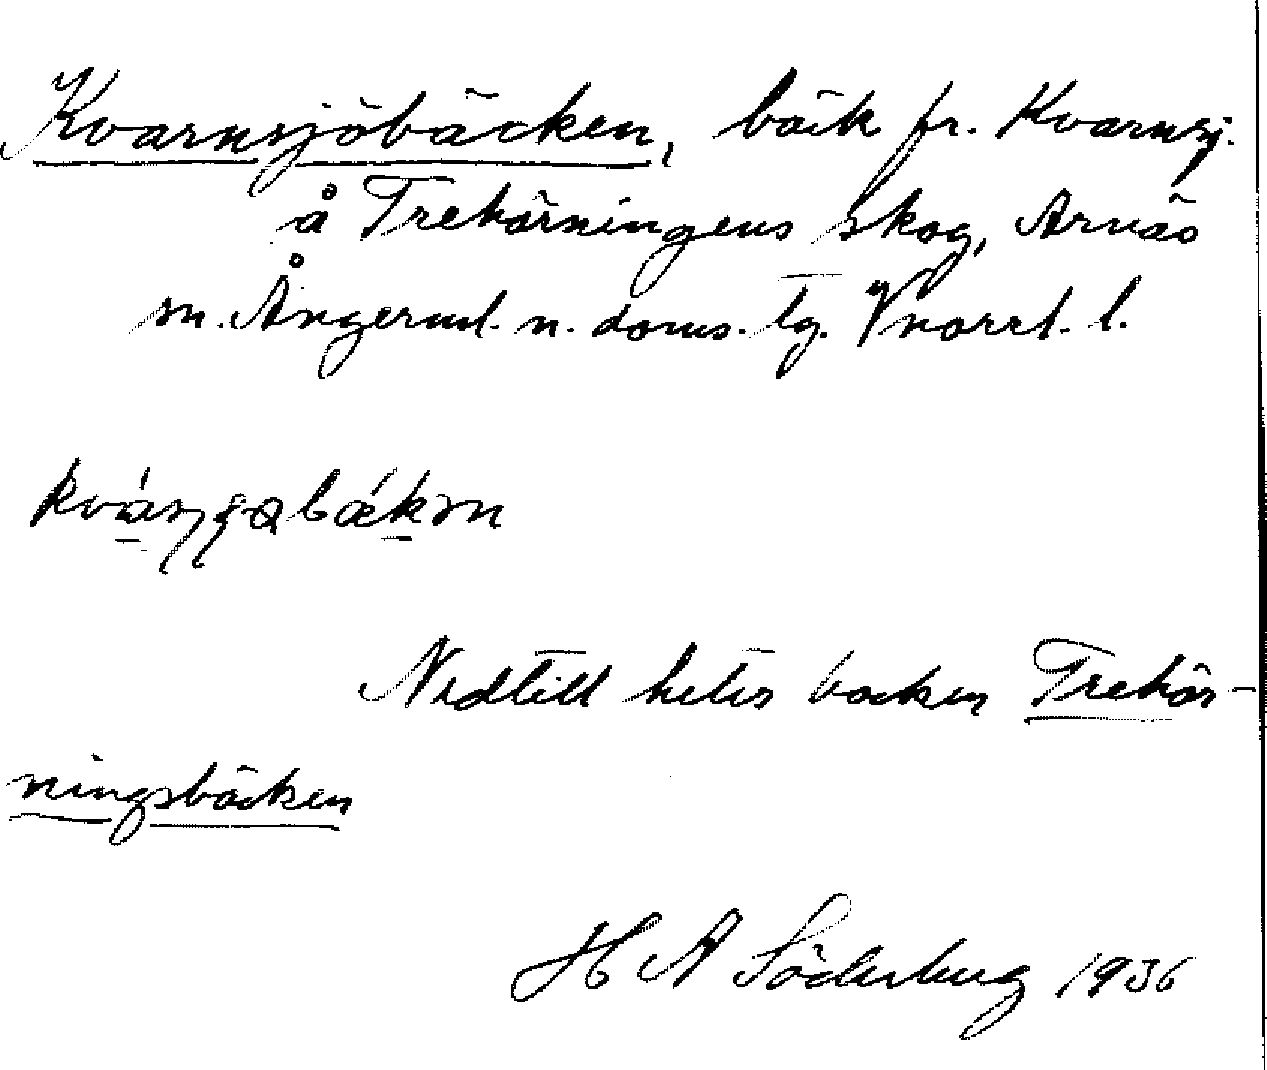 Kvarnsjöbäcken, bäck fr. Kvarnsj.
å Trehörningens skog, Arnäs
sn. Ångerml. n. doms. tg. Vnorrl. l.
Nedtill heter bäcken Trehör-
ningsbäcken
H A Söderberg 1936